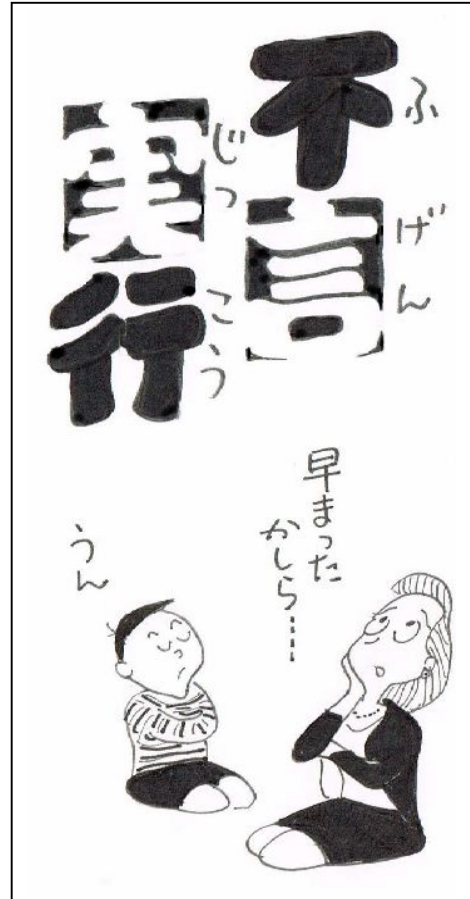 不言
ふげん
実行
じっこう
早まった
かしら……
うん